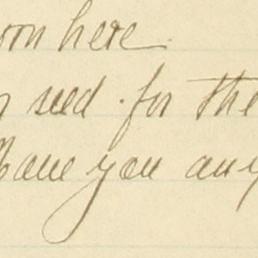 here
seed for the
Have you any